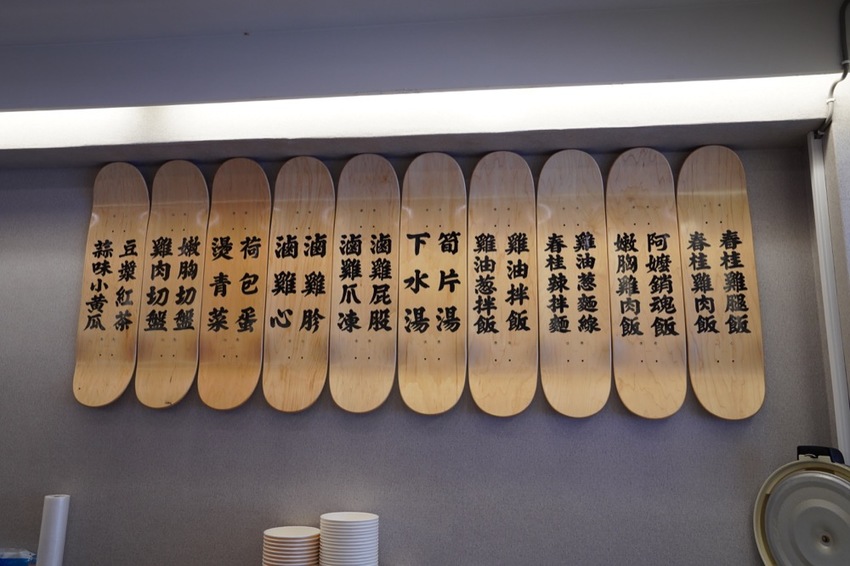 春桂雞腿飯
春桂雞肉飯
阿嬤銷魂飯
嫩胸雞肉飯
雞油蔥麵線
春桂辣拌麵
雞油拌飯
雞油蔥拌飯
筍片湯
下水湯
滷雞屁股
滷雞爪凍
滷雞胗
滷雞心
荷包蛋
燙青菜
嫩胸切盤
雞肉切盤
豆漿紅茶
蒜味小黃瓜